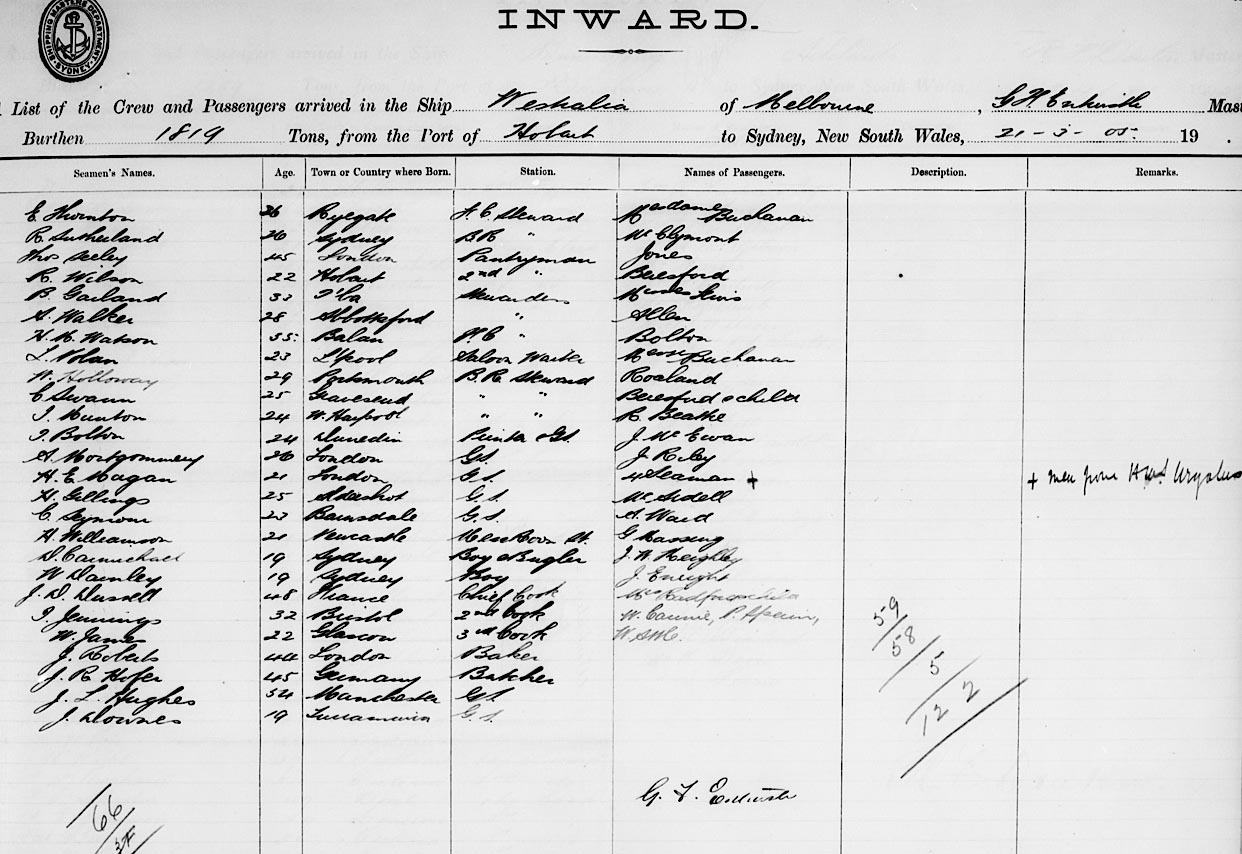 SHIPPING MASTERS DEPARTMENT SYDNEY
INWARD.
List of the Crew and Passengers arrived in the Ship Westralia of Melbourne, G F Mast
Burthen 1819 Tons, from the Port of Hobart to Sydney, New South Wales, 21-3-05 19 .
Seamen's Names. Age. Town or Country where Born. Station. Names of Passengers. Description. Remarks.
E Thornton 26 Ryegate F. C. Steward Madame Buchanan
R. Sutherland 26 Sydney B.R " McClymont
Thos Seeley 45 London Pantryman Jones
R. Wilson 22 Hobart 2nd " Beresford
B. Garland 33 Stewardess Misses Lewis
A. Walker 28 Abbotsford " Allen
H. M. Watson 35 Balan " Bolton
L. Nolan 23 L'pool Saloon Waiter Buchanan
W. Holloway 29 Portsmouth B.R. Steward Rowland
C Swann 25 Gravesend " " Beresford & child
T. Hunton 24 W. Harpool " " R. Beatie
T. Bolton 24 Dunedin J. McEwan
A. Montgommery 26 London G.S. J Riley
H. E. Magan 21 London G.S. 4 Seaman + + men from HMS
H. Gillings 25 Aldershot G.S. McSidell
C. Seymour 23 Bairnsdale G.S. A. Ward
H. Williamson 21 Newcastle Mess Room St. G Massing
D. Carmichael 19 Sydney Boy & Bugler J. W. Keighley
W Dainley 19 Sydney Boy J. Enright
J. D. Dussell 48 France Chief Cook
T. Jennings 32 Bristol 2nd Cook W.
W. James 22 Glascow 3rd Cook
J. Roberts 44 London Baker
J. R. Hofer 45 Germany Butcher
J. L. Hughes 34 Manchester G.S.
J. Downes 19 G.S.
59
58
5
122
G. F.
66